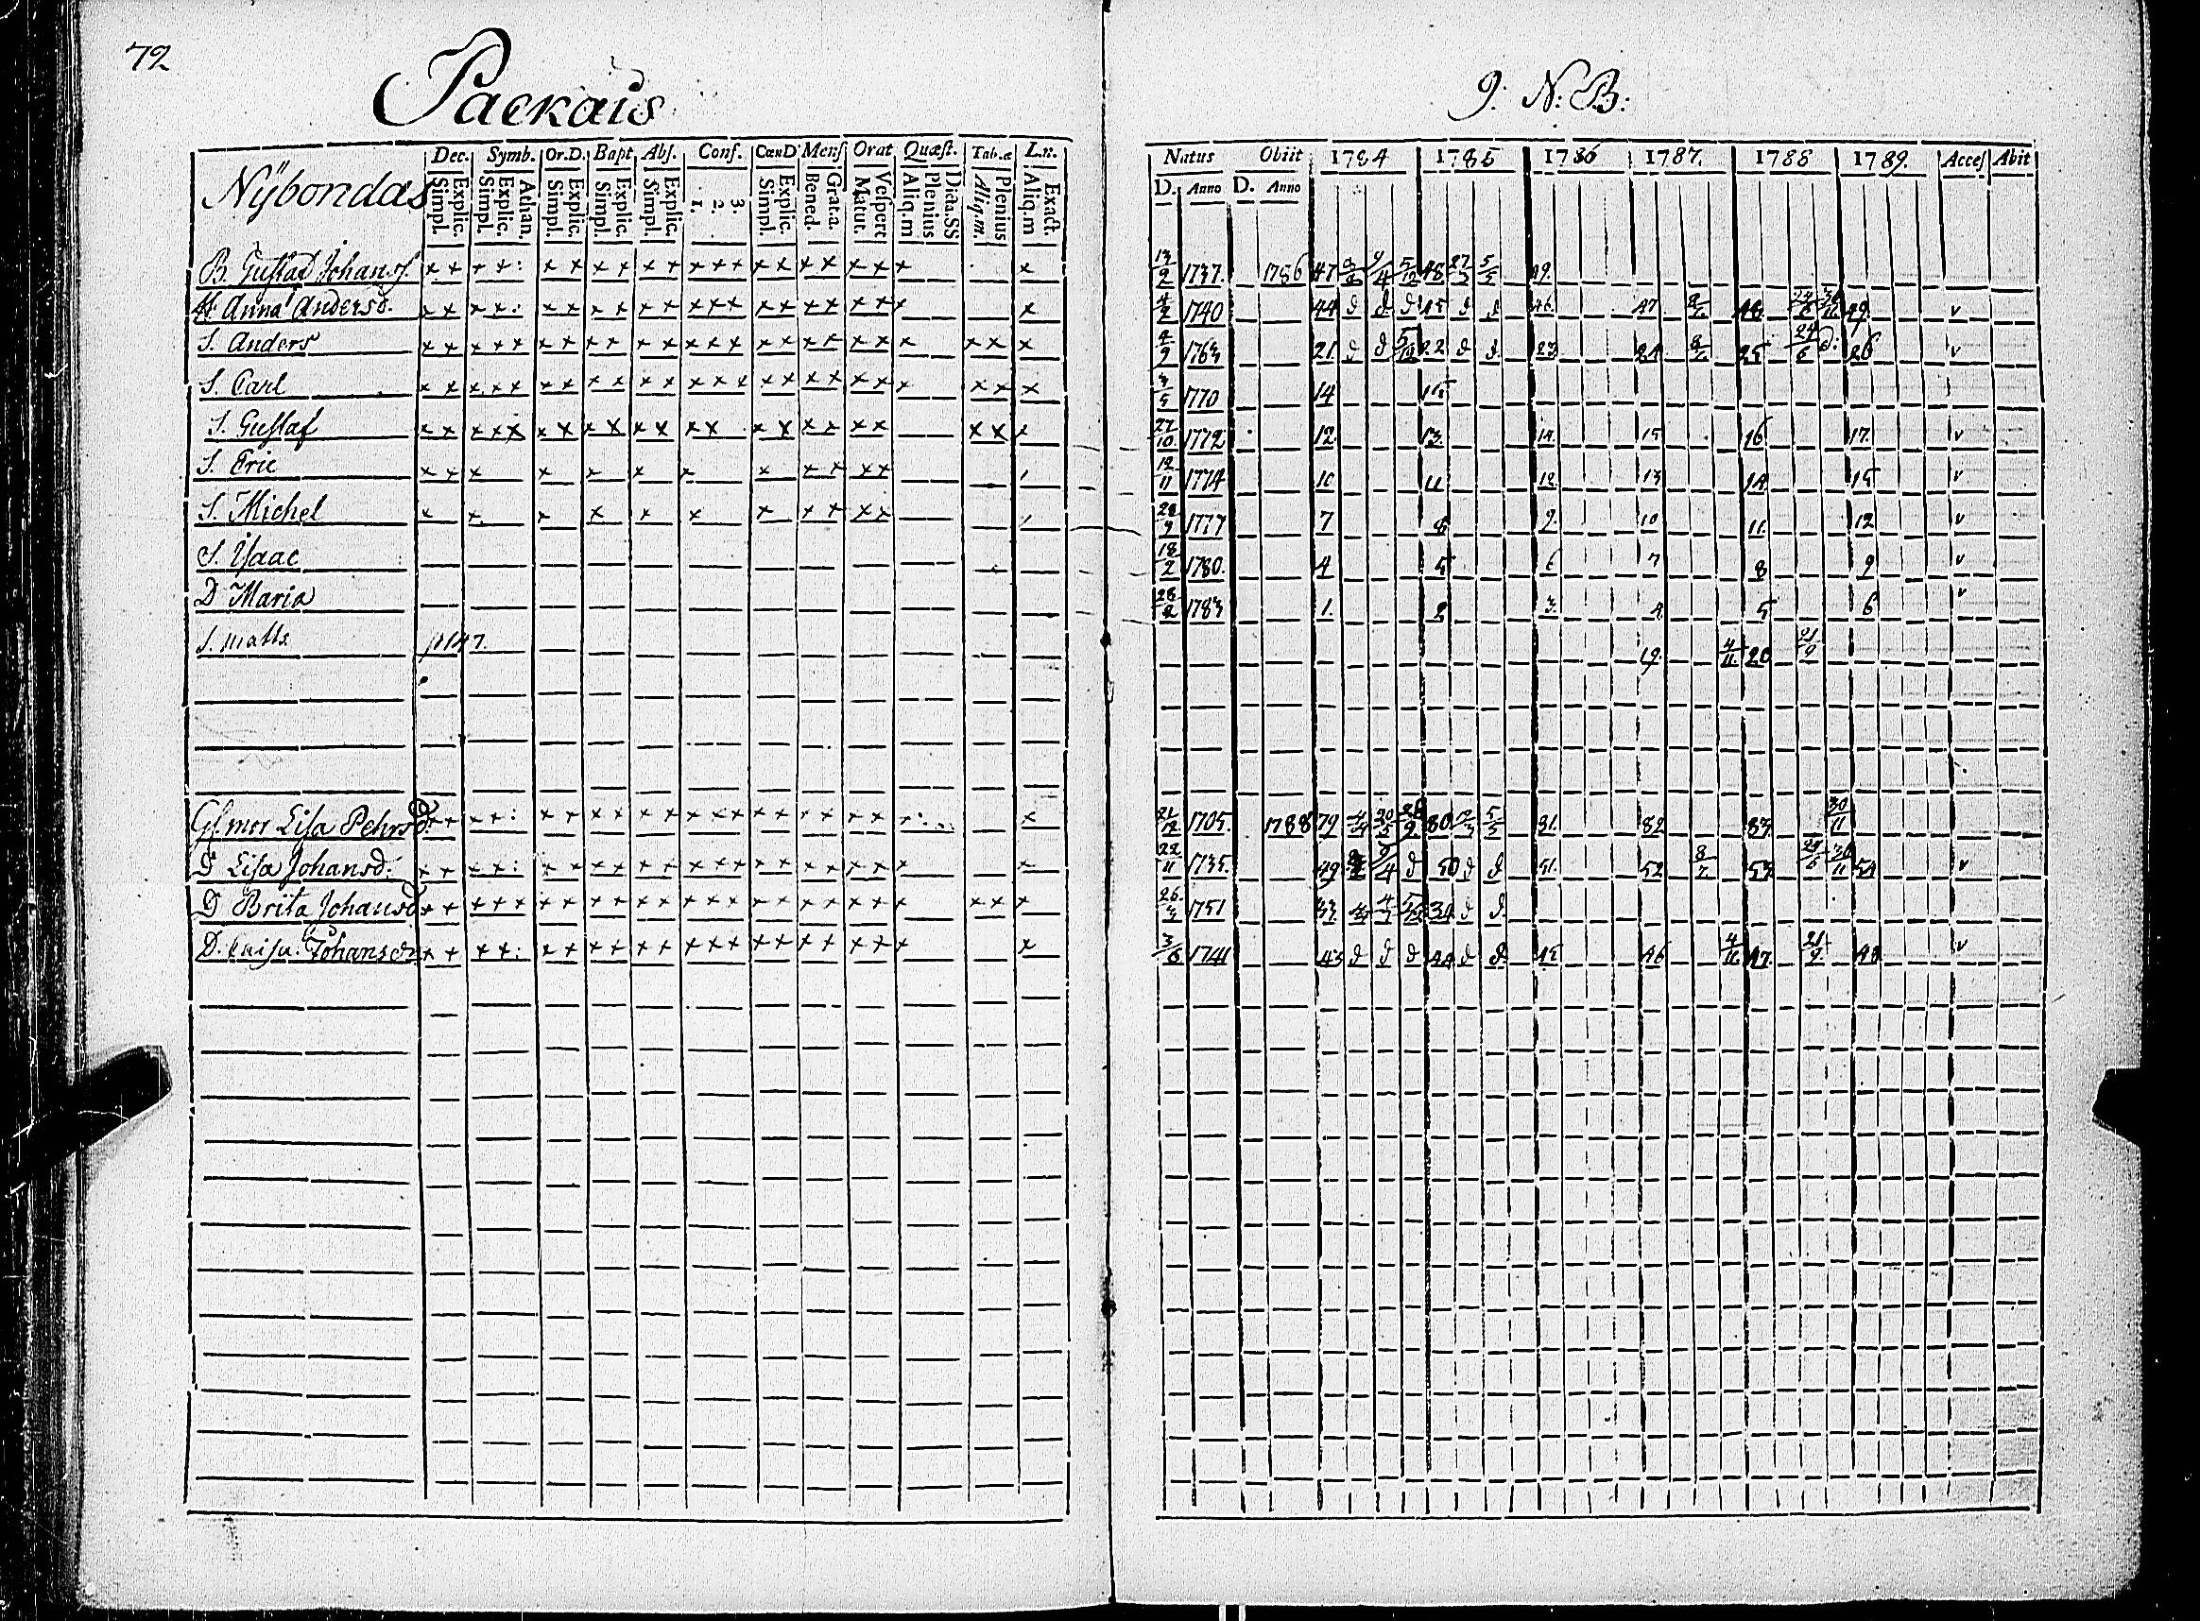 72
Packais
9. N: B:
Nÿbondas
Dec. Symb. Or.D. Bapt Abſ. Conf. CœnD Menſ Orat Quæſt. Tab.æ L.n.
Simpl. Explic. Simpl. Explic. Athan. Simpl. Explic. Simpl. Explic. Simpl. Explic. 1. 2. 3. Simpl. Explic. Bened. Grat.a. Matut. Veſpert Aliq.m Plenius Dicta.SS Aliq.m. Plenius Aliq.m Exact.
Natus Obiit 1784 1785 1786 1787. 1788 1789. Acceſ Abit
D. Anno D. Anno
B. Guſtaf Johanſ. x x x x : x x x x x x x x x x x x x x x x x 13/2 1737. 1786 47 48 5/5 49.
H. Anna Andersd. x x x x : x x x x x x x x x x x x x x x x x 1740 44 d d d 45 d d 46. 47 46 49 v
S. Anders x x x x x x x x x x x x x x x x x x x x x x x 9 1763 21. d d 5/12 22 d d. 23 24 25 24/6 d: 26 v
S. Carl x x x x x x x x x x x x x x x x x x x x x x x 1770 14 15
S. Guſtaf x x x x x x x x x x x x x x x x x x x x x 27/10 1772 12 13. 14. 15 16 17. v
S. Eric x x x x x x x x x x x x 12/11 1774 10 11 12. 13 14 15 v
S. Michel x x x x x x x x x x x 28/9 1777 7 8 9. 10 11. 12 v
S. Iſaac 18/2 1780. 4 5 6 7 8 9 v
D Maria 28/2 1783 1. 2 3. 4 5 6 v
S. matts 19. 4/11 20 21/9
Gſ.mor Liſa Pehrsd. x x x x : x x x x x x x x x x x x x x x x x 21/12 1705. 1788 79 80 5/5 81. 82 83. 30/11
D Liſa Johansd. x x x x : x x x x x x x x x x x x x x x x x 22/11 1735. 49 d 50 d d 51. 52 53. 30/11 54 v
D Brita Johansd x x x x x x x x x x x x x x x x x x x x x x x 26/3 1751 33 34 d d.
D. Caisa Johansdr x x x x : x x x x x x x x x x x x x x x x x 3/6 1741 43 d d d 44 d d 45. 46 4/11 47. 21/9 48 v